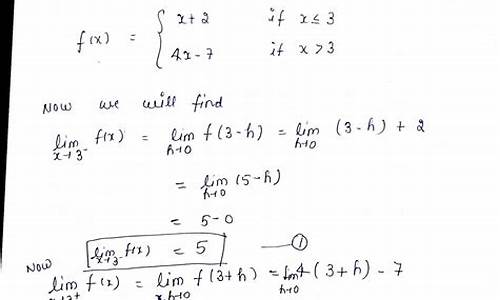 f(x) = { x+2 if x ≤ 3
4x-7 if x > 3
Now we will find
lim x→3⁻ f(x) = lim h→0 f(3-h) = lim h→0 (3-h) + 2
= lim h→0 (5-h)
= 5-0
lim x→3⁻ f(x) = 5 —— ①
Now
lim x→3⁺ f(x) = lim h→0 f(3+h) = lim h→0 4(3+h) - 7